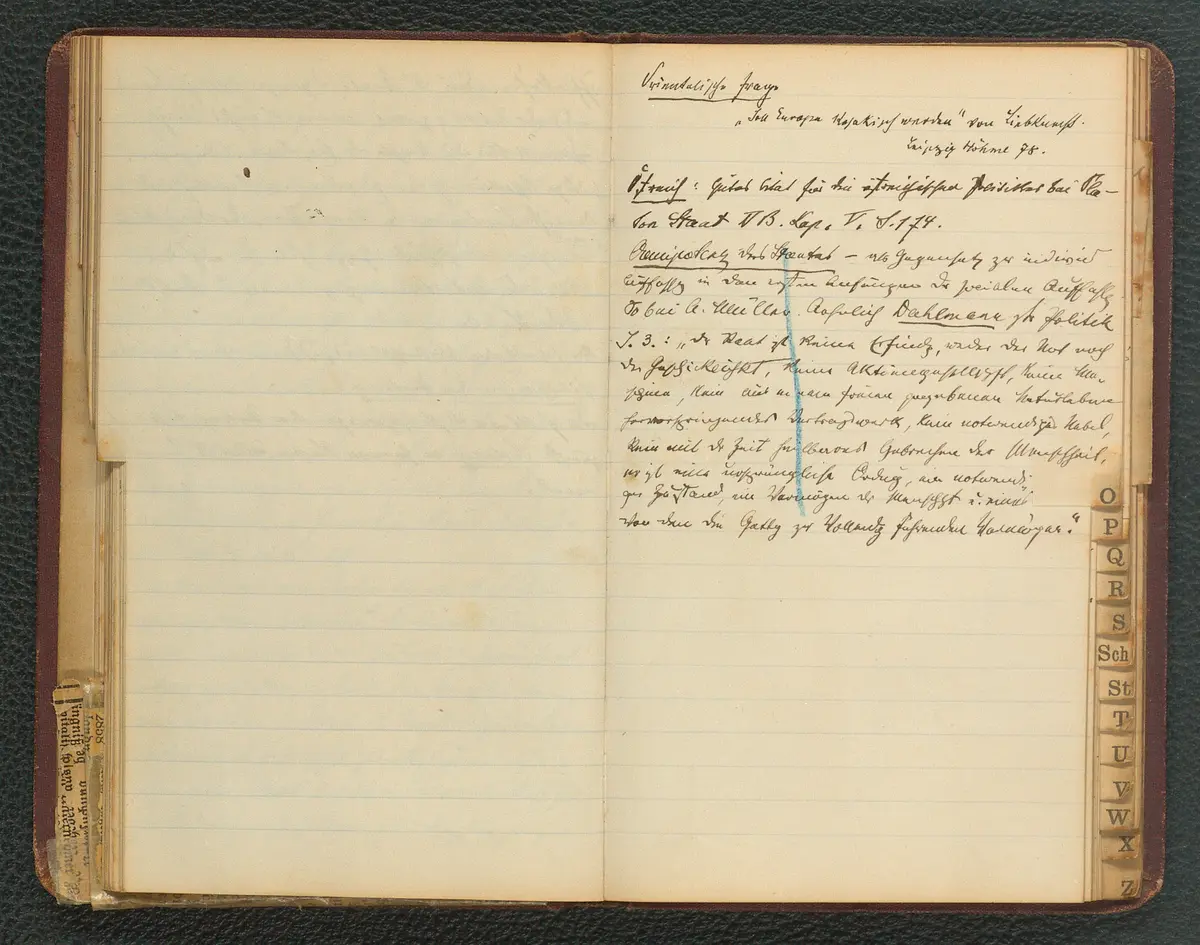 Orientalische Frage
„Soll Europa Kosakisch werden“ von Liebknecht.
Leipzig Höhme 78.
Östreich: Gutes Citat für die östreichischen Politiker bei Pla-
ton Staat II B. Kap. V. S. 174.
Omnipotenz des Staates – als Gegensatz zur individ
Auffassg in den ersten Anfängen der socialen Auffassg.
So bei A. Müller. Aehnlich Dahlmann Politik
S. 3.: „der Staat ist keine Erfindg, weder der Not noch
der Geschicklichkt, keine Aktiengesellschft, keine Ma-
schine, kein aus einem freien gegebenen Naturleben
hervorspringendes Vertragswerk, kein notwendiges Uebel,
kein mit der Zeit heilbares Gebrechen der Menschheit,
er ist eine ursprüngliche Ordng, ein notwendi-
ger Zustand, ein Vermögen der Menschht u. eines
von den die Gattg zur Vollendg führenden Vermögen.“
O
P
Q
R
S
Sch
St
T
U
V
W
X
Z